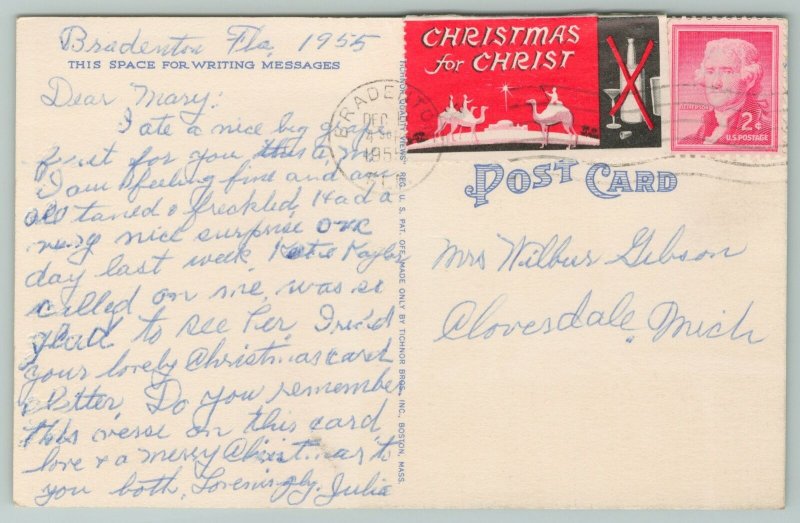 Bradenton Fla, 1955
THIS SPACE FOR WRITING MESSAGES
Dear Mary:
I ate a nice big grape
fruit for you this a.m.
I am feeling fine and am
all taned & freckled. Had a
very nice surprise one
day last week. Katie Kaylor
called on me, was so
glad to see her. I rec'd
your lovely Christmas card
& letter. Do you remember
this verse on this card
love & a merry Christmas to
you both, Loveingly, Julia
TICHNOR QUALITY VIEWS REG. U. S. PAT. OFF. MADE ONLY BY TICHNOR BROS., INC., BOSTON, MASS.
CHRISTMAS
for CHRIST
JEFFERSON
2¢
U.S. POSTAGE
BRADENTON
DEC
1955
POST CARD
Mrs Wilbur Gibson
Clovesdale, Mich